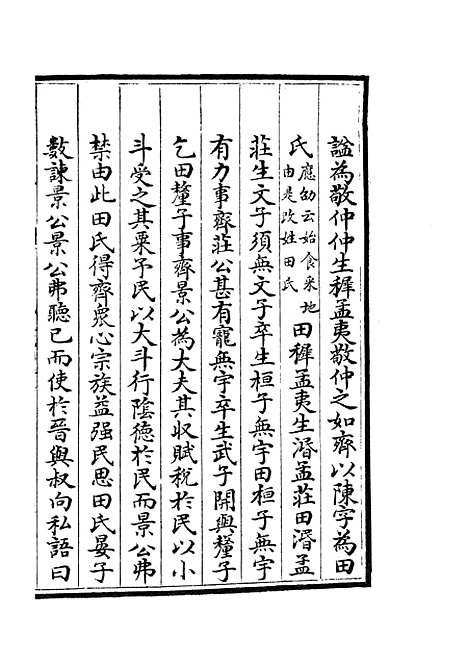 諡為敬仲仲生穉孟夷敬仲之如齊以陳字為田
氏應劭云始食采地由是改姓田氏田穉孟夷生湣孟莊田湣孟
莊生文子須無文子卒生桓子無宇田桓子無宇
有力事齊莊公甚有寵無宇卒生武子開與釐子
乞田釐子事齊景公為大夫其收賦稅於民以小
斗受之其粟予民以大斗行陰德於民而景公弗
禁由此田氏得齊衆心宗族益强民思田氏晏子
數諫景公景公弗聽已而使於晉與叔向私語曰